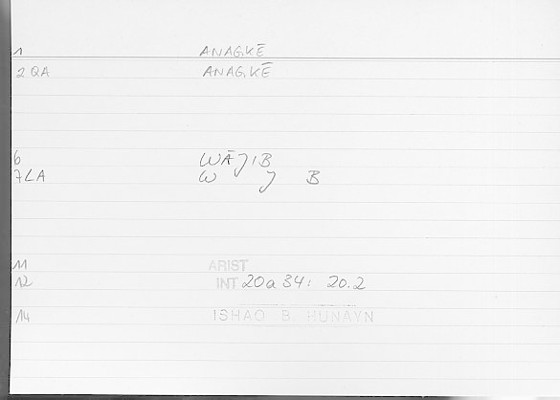 1 ANAGKĒ
2 QA ANAGKĒ
6 WĀJIB
7LA W J B
11 ARIST
12 INT 20a34: 20.2
14 ISHAQ B HUNAYN